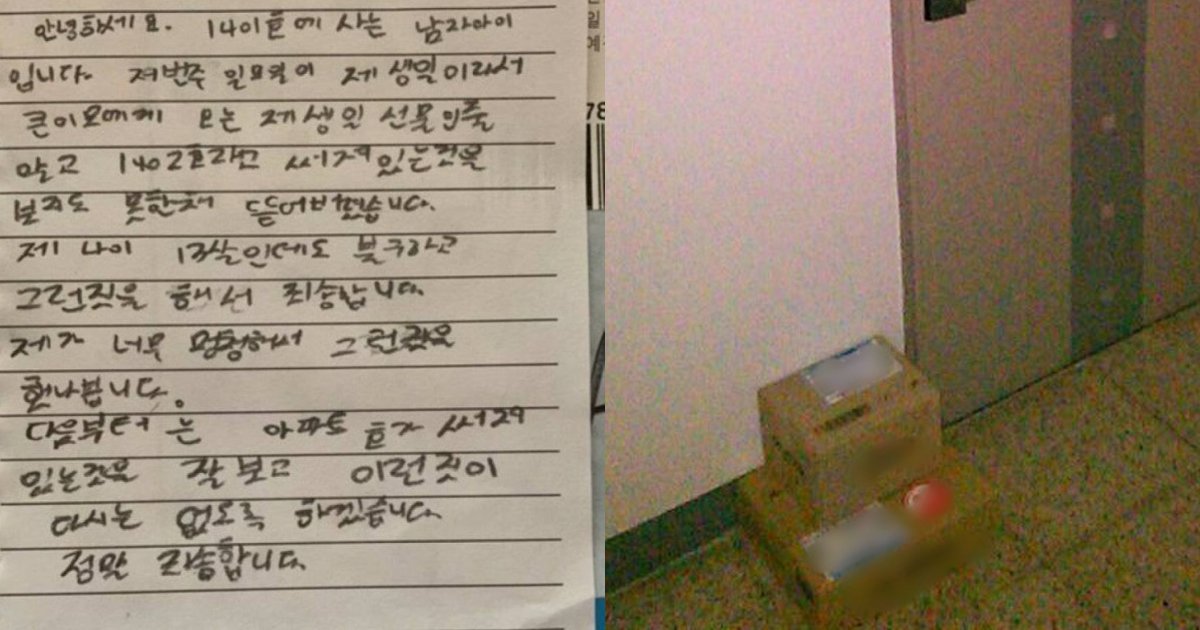 안녕하세요. 1401호에 사는 남자아이
입니다. 저번주 일요일이 제 생일이라서
큰이모에게 오는 제 생일 선물인줄
알고 1402호라고 써져있는것을
보지도 못한채 뜯어버렸습니다.
제 나이 13살인데도 불구하고
그런짓을 해서 죄송합니다.
제가 너무 멍청해서 그런짓을
했나봅니다.
다음부터는 아파트 호가 써져
있는것을 잘보고 이런짓이
다시는 없도록 하겠습니다.
정말 죄송합니다.
일
예
78